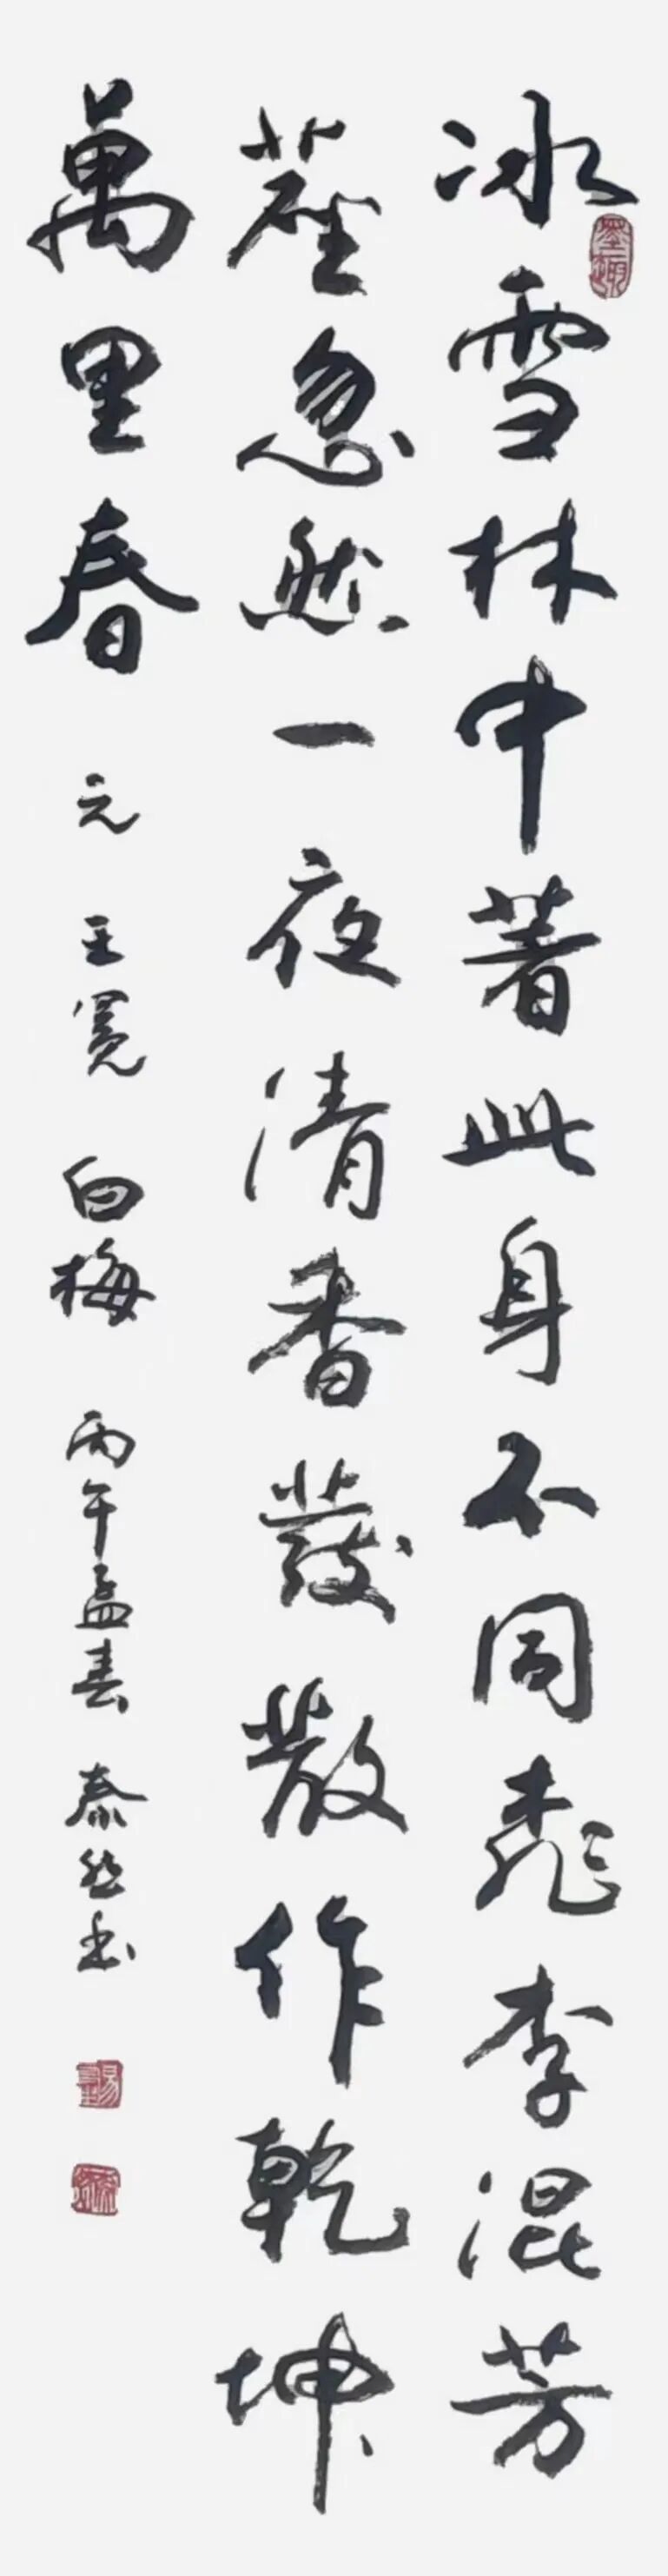 冰雪林中著此身不同桃李混芳
塵忽然一夜清香發散作乾坤
萬里春 元 王冕 白梅 丙午孟春 泰然書
墨趣